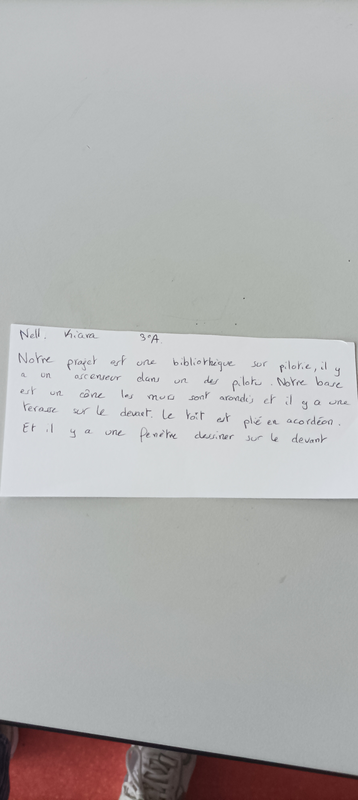 Nell. Kiara 3°A.
Notre projet est une bibliothèque sur pilotie, il y
a un ascenseur dans un des pilotis. Notre base
est un cône les murs sont arondis et il y a une
terasse sur le devant. Le toit est plié en acordéon.
Et il y a une fenètre dessiner sur le devant